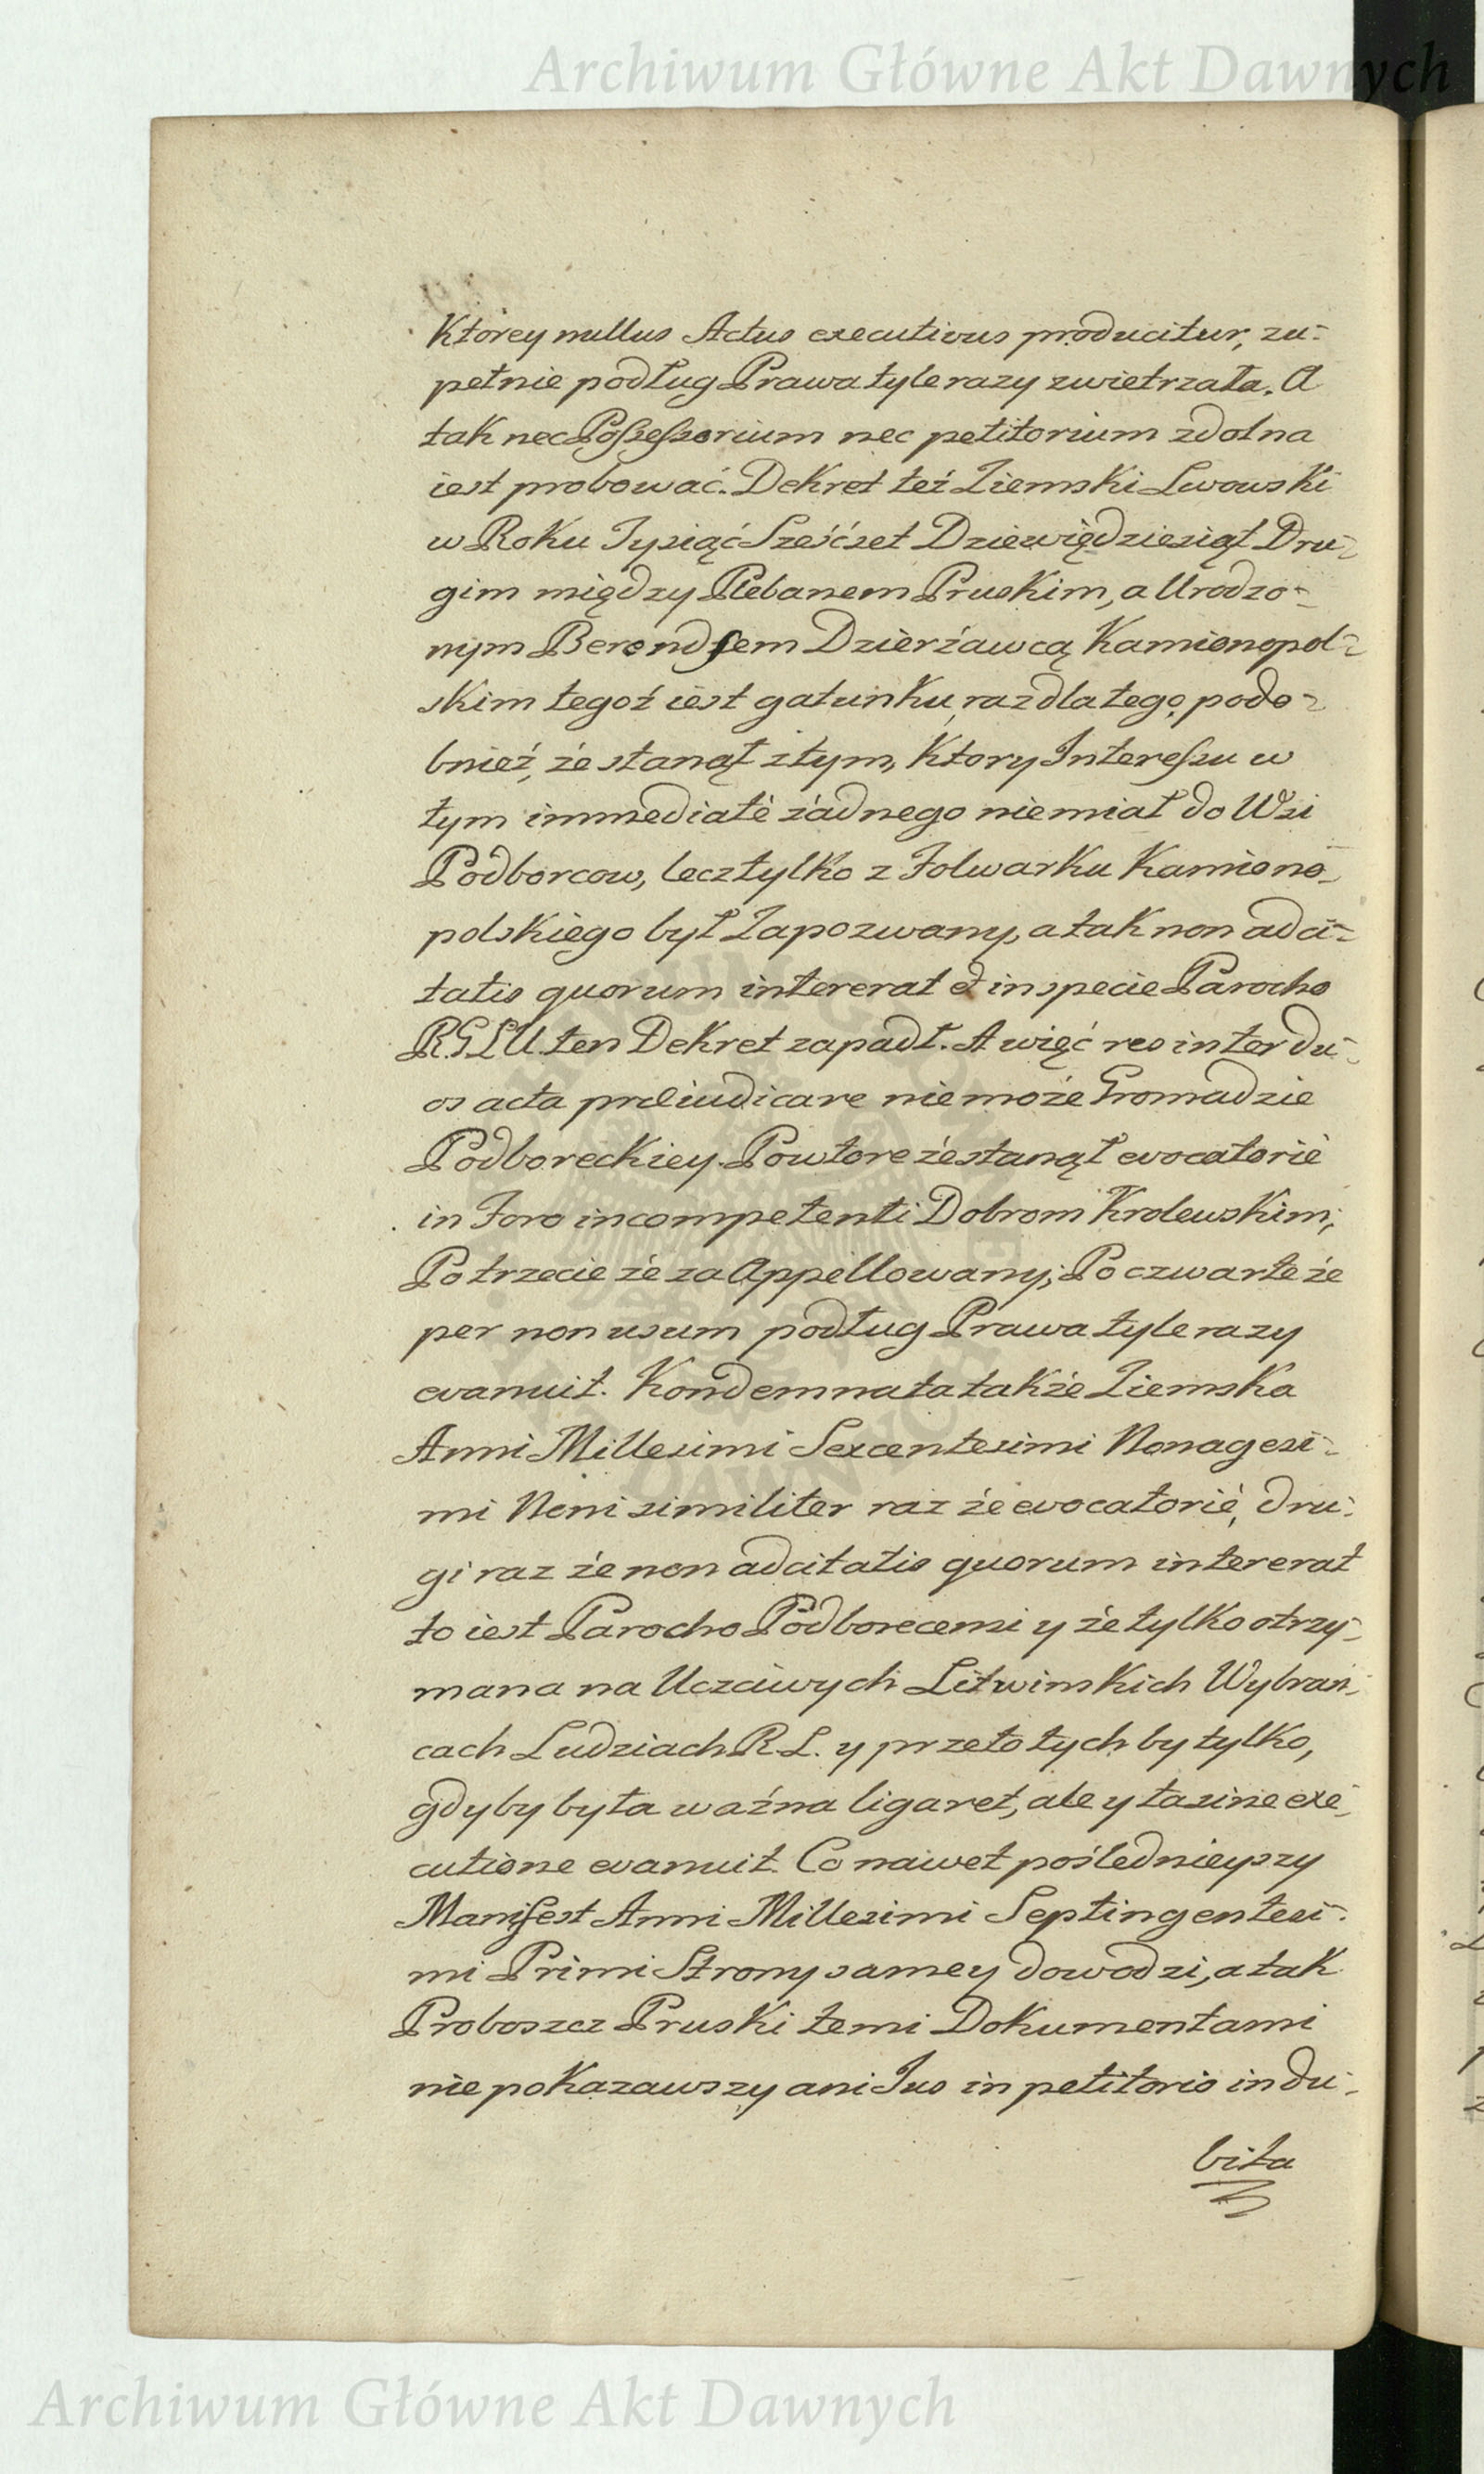 Archiwum Główne Akt Dawnych
Ktorey nullus Actus executivus producitur, zu-
pełnie podług Prawa tyle razy zwietrzała. A
tak nec Possessorium nec petitorium zdolna
iest probować. Dekret też Ziemski Lwowski
w Roku Tysiąć Sześćset Dziewiędziesiąt Dru-
gim między Plebanem Pruskim, a Urodzo-
nym Berendsem Dzierźawcą Kamionopol-
skim tegoź iest gatunku, raz dla tego, podo-
bnieź, źe stanął z tym, Ktory Interessu w
tym immediatè źadnego niemiał do Wsi
Podborcow, lecz tylko z Folwarku Kamiono-
polskiego był Zapozwany, a tak non adci-
tatis quorum intererat et in specie Parocho
R.G.L.U. ten Dekret zapadł. A więć res inter du-
os acta preiudicare niemoźe Gromadzie
Podboreckiey. Powtore źe stanął evocatoriè
in Foro incompetenti Dobrom Krolewskim;
Po trzecie źe za Appellowany; Po czwarte źe
per non usum podług Prawa tyle razy
evanuit. Kondemnata takźe Ziemska
Anni Millesimi Sexcentesimi Nonagesi-
mi Noni similiter raz źe evocatoriè, dru-
gi raz źe non adcitatis quorum intererat
to iest Parocho Podborecensi y źe tylko otrzy-
mana na Uczciwych Litwinskich Wybrań-
cach Ludziach R.L. y przeto tych by tylko,
gdyby była waźna ligaret, ale y ta sine exe-
cutione evanuit. Co nawet poślednieyszy
Manifest Anni Millesimi Septingentesi-
mi Primi Strony samey dowodzi, a tak
Proboszcz Pruski temi Dokumentami
nie pokazawszy ani Jus in petitorio indu-
bita
Archiwum Główne Akt Dawnych